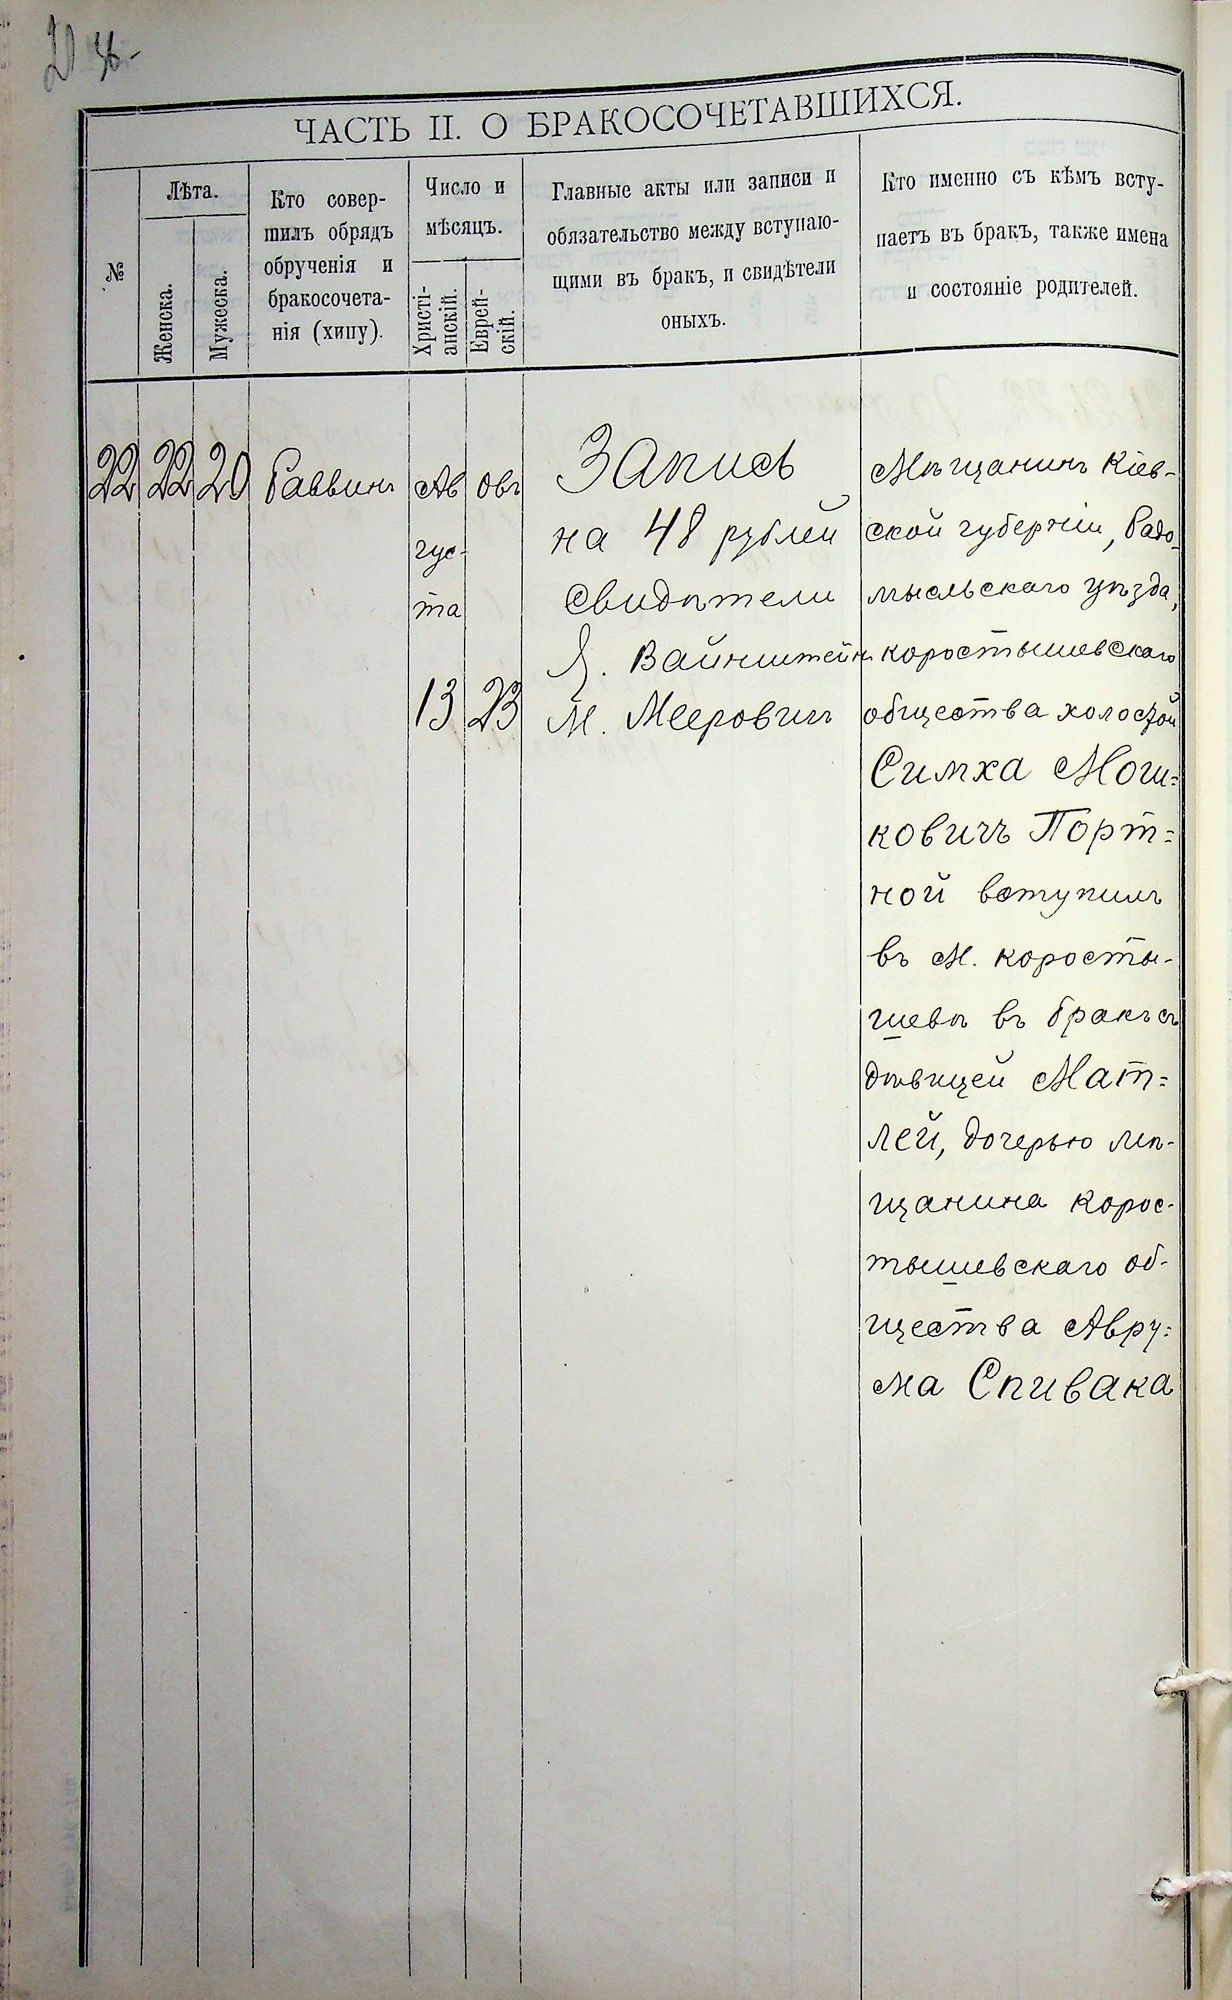 20 36-
ЧАСТЬ II. О БРАКОСОЧЕТАВШИХСЯ.
№
Лѣта.
Женска.
Мужеска.
Кто совер-
шилъ обрядъ
обрученія и
бракосочета-
нія (хипу).
Число и
мѣсяцъ.
Христі-
анскій.
Еврей-
скій.
Главные акты или записи и
обязательство между вступаю-
щими въ бракъ, и свидѣтели
оныхъ.
Кто именно съ кѣмъ всту-
паетъ въ бракъ, также имена
и состояніе родителей.
22
22
20
Раввинъ
Ав
гус-
та
13
Овъ
23
Запись
на 48 рублей
Свидѣтели
Я. Вайнштейн
М. Меерович
Мѣщанинъ Кіев-
ской губерніи, Радо-
мысльскаго уѣзда,
коростышевскаго
общества холостой
Симха Мош=
ковичъ Порт=
ной вступилъ
въ м. коросты-
шевѣ въ бракъ съ
дѣвицей Мат=
лей, дочерью мѣ-
щанина корос-
тышевскаго об-
щества Авру=
ма Спивака